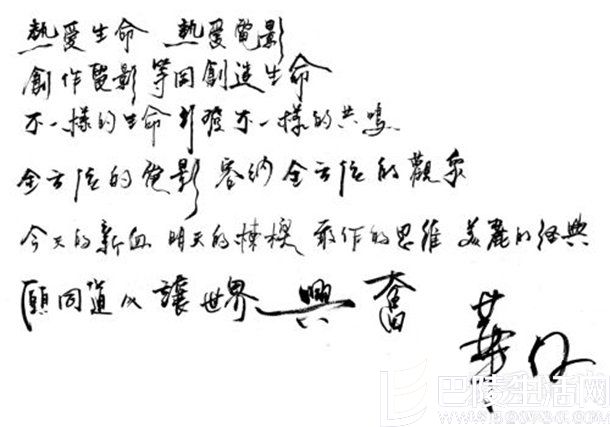 熱愛生命 熱愛電影
創作電影等同創造生命
不一樣的生命引發不一樣的共鳴
全方位的電影 容納全方位的觀眾
今天的新血 明天的棟樑 敢作的思維 美麗的經典
願同道人 讓世界興奮
華仔
巴陵生活网